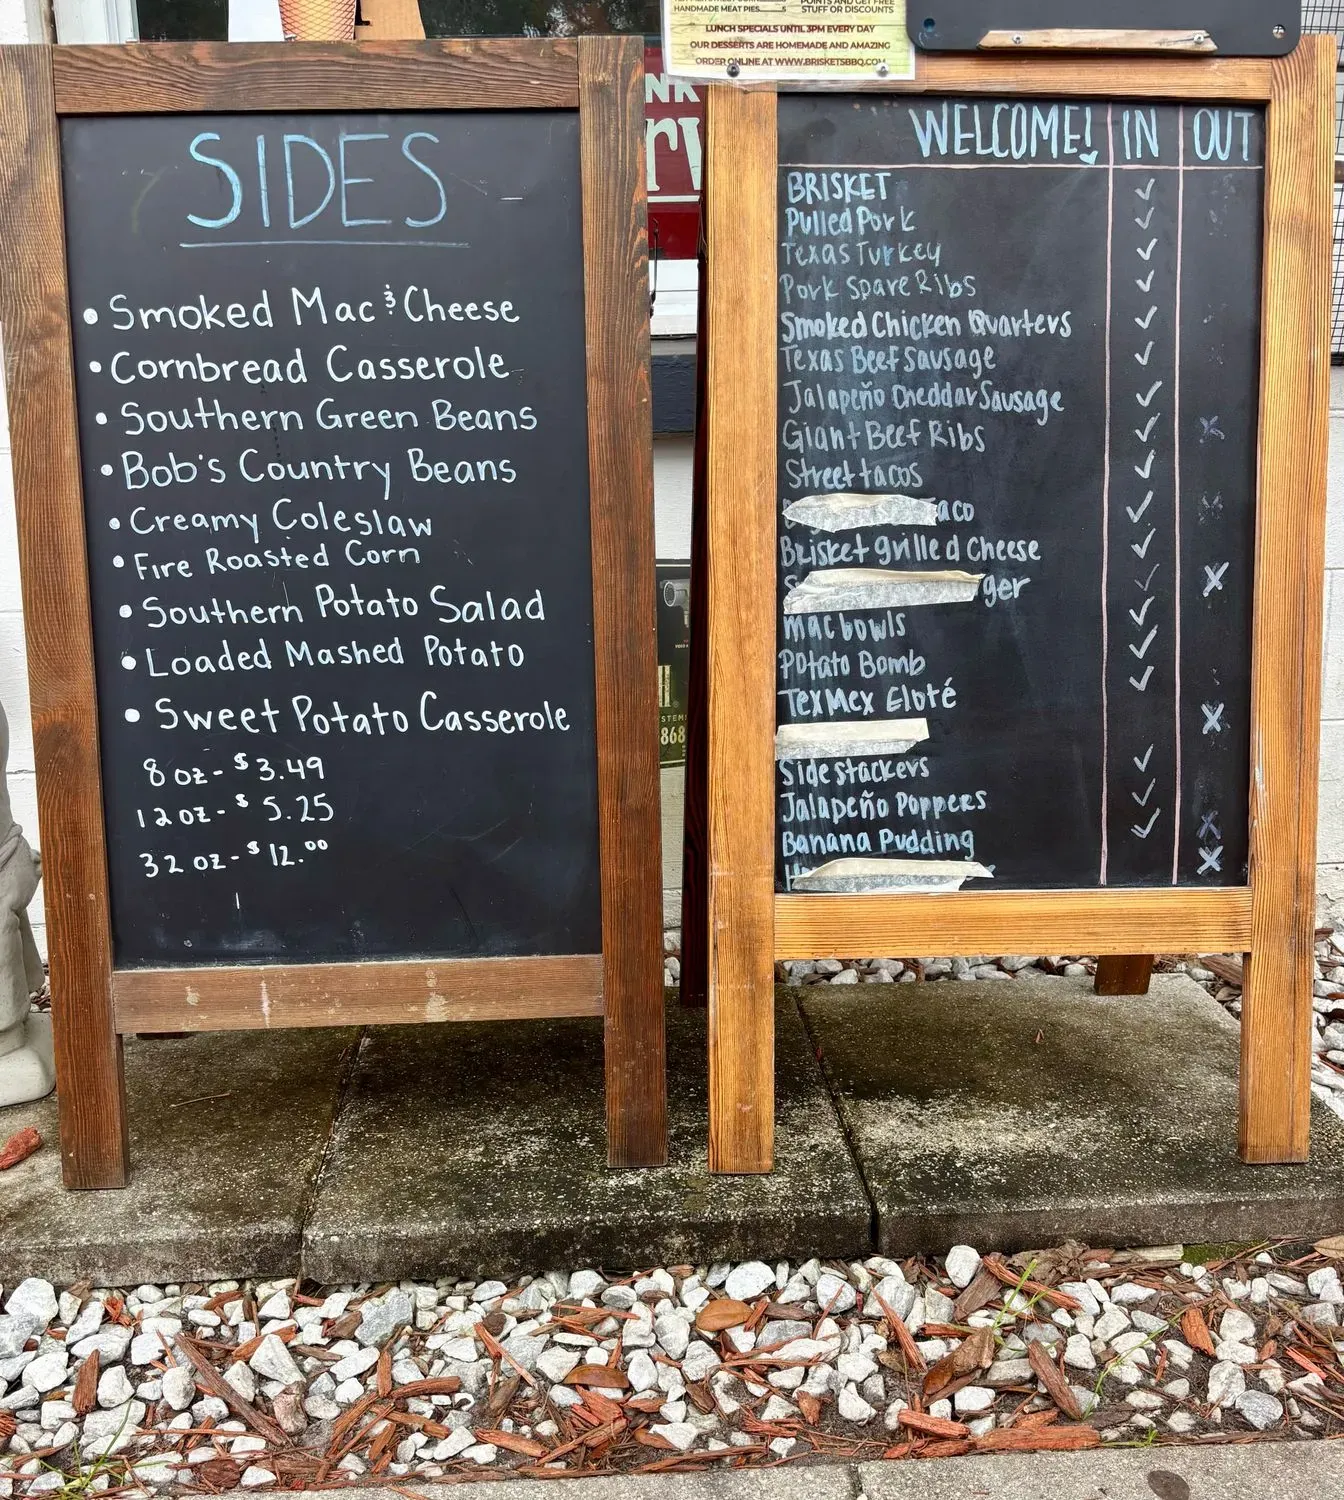 HANDMADE MEAT PIES.....5
POINTS AND GET FREE
STUFF OR DISCOUNTS
LUNCH SPECIALS UNTIL 3PM EVERY DAY
OUR DESSERTS ARE HOMEMADE AND AMAZING
ORDER ONLINE AT WWW.BRISKETSBBQ.COM
SIDES
• Smoked Mac & Cheese
• Cornbread Casserole
• Southern Green Beans
• Bob's Country Beans
• Creamy Coleslaw
• Fire Roasted Corn
• Southern Potato Salad
• Loaded Mashed Potato
• Sweet Potato Casserole
8 oz - $3.49
12 oz - $5.25
32 oz - $12.00
WELCOME! IN OUT
BRISKET
Pulled Pork
Texas Turkey
Pork Spare Ribs
Smoked Chicken Quarters
Texas Beef Sausage
Jalapeño Cheddar Sausage
Giant Beef Ribs
Street tacos
aco
Brisket grilled Cheese
ger
mac bowls
Potato Bomb
TexMex Eloté
Side stackers
Jalapeño Poppers
Banana Pudding
868